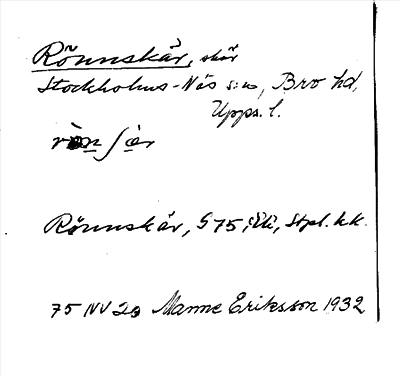 Rönnskär, skär
Stockholms-Näs s:n, Bro hd,
Upps. l.
Rönnskär, S 75, Stpl. kk.
75 NV 20 Manne Eriksson 1932